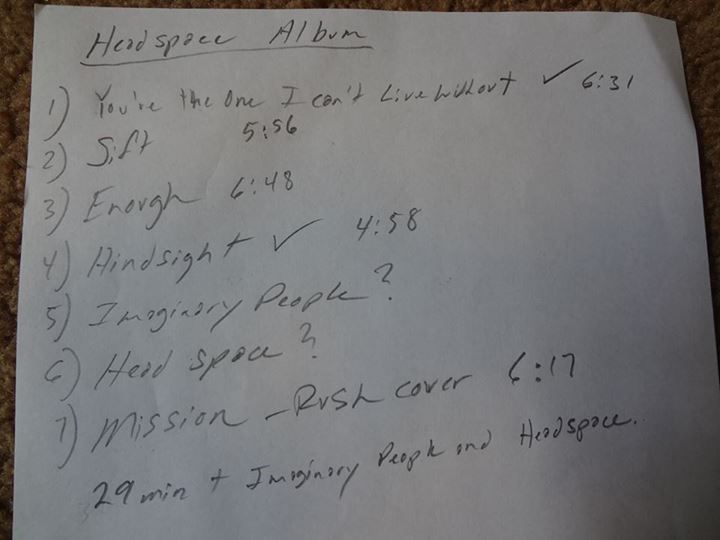 Headspace Album
1) You're the One I can't Live Without ✓ 6:31
2) Sift 5:56
3) Enough 6:48
4) Hindsight ✓ 4:58
5) Imaginary People ?
6) Head space ?
7) Mission - Rush cover 6:17
29 min + Imaginary People and Headspace.